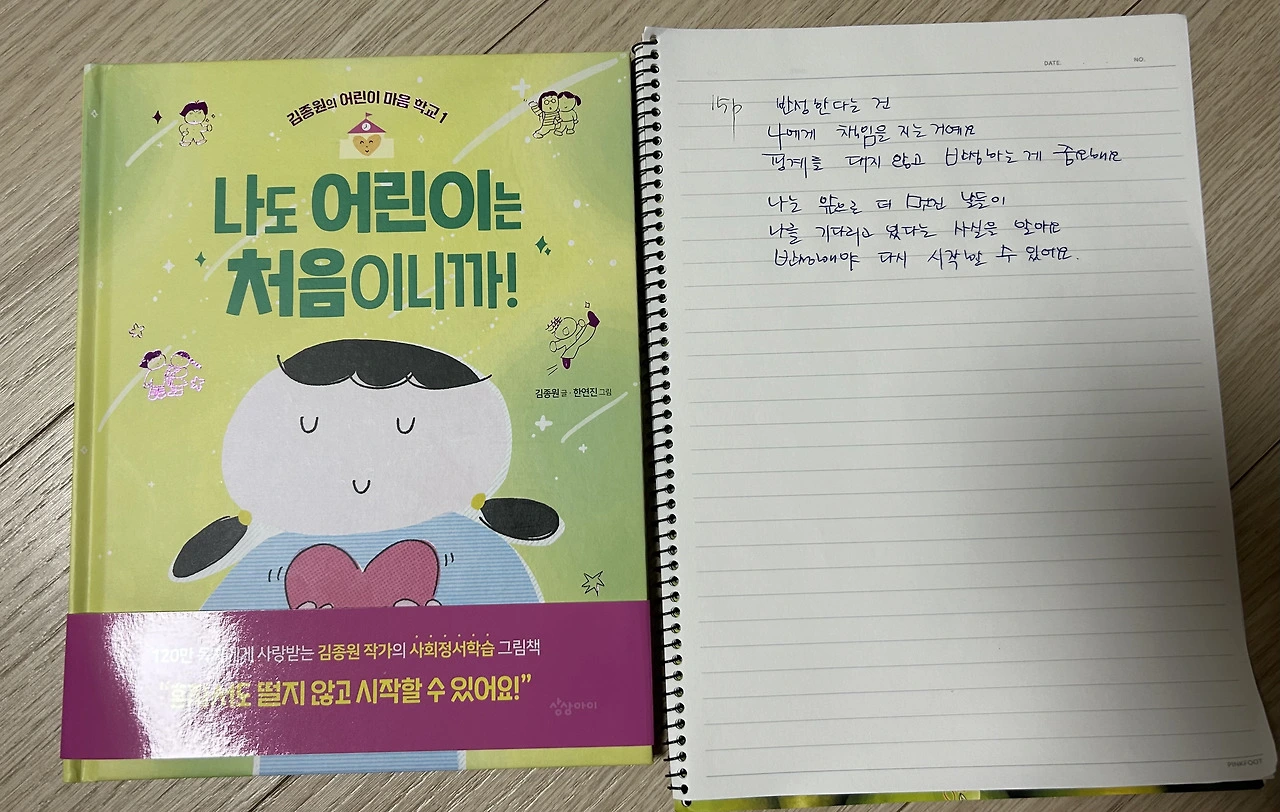 김종원의 어린이 마음 학교 1
나도 어린이는
처음이니까!
김종원 글 · 한연진 그림
120만 독자에게 사랑받는 김종원 작가의 사회정서학습 그림책
"혼자서도 떨지 않고 시작할 수 있어요!"
상상아이
DATE. NO.
15p 반성한다는 건
나에게 책임을 지는거예요
핑계를 대지 않고 반성하는 게 중요해요
나는 앞으로 더 멋진 날들이
나를 기다리고 있다는 사실을 알아요
반성해야 다시 시작할 수 있어요.
PINKFOOT